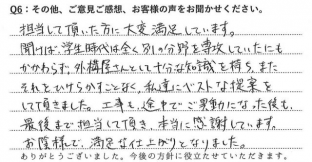 Q6：その他、ご意見ご感想、お客様の声をお聞かせください。
担当して頂いた方に大変満足しています。
聞けば、学生時代は全く別の分野を専攻していたにも
かかわらず、外構屋さんとして十分な知識を持ち、また
それをひけらかすことなく、私達にベストな提案を
して頂きました。工事も、途中でご異動になった後も、
最後まで担当して頂き、本当に感謝しています。
お陰様で、満足な仕上がりとなりました。
ありがとうございました。今後の方針に役立たせていただきます。